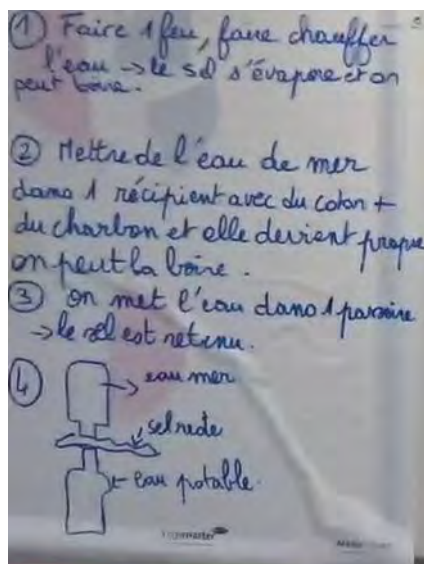 ① Faire 1 feu, faire chauffer
l'eau → le sel s'évapore et on
peut boire.
② Mettre de l'eau de mer
dans 1 récipient avec du coton +
du charbon et elle devient propre
on peut la boire.
③ on met l'eau dans 1 passoire
→ le sel est retenu.
④
eau mer
sel reste
eau potable.